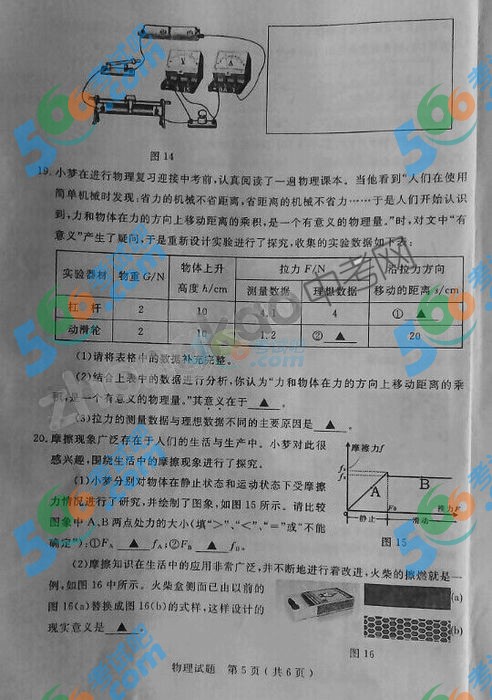 图 14
19. 小梦在进行物理复习迎接中考前,认真阅读了一遍物理课本。当他看到“人们在使用
简单机械时发现:省力的机械不省距离,省距离的机械不省力……于是人们开始认识
到,力和物体在力的方向上移动距离的乘积,是一个有意义的物理量。”时,对文中“有
意义”产生了疑问,于是重新设计实验进行了探究,收集的实验数据如下表:
实验器材 物重 G/N 物体上升高度 h/cm 拉力 F/N 沿拉力方向移动的距离 s/cm
测量数据 理想数据
杠 杆 2 10 4.1 4 ① ▲
动滑轮 2 10 1.2 ② ▲ 20
(1)请将表格中的数据补充完整。
(2)结合上表中的数据进行分析,你认为“力和物体在力的方向上移动距离的乘
积,是一个有意义的物理量。”其意义在于 ▲ 。
(3)拉力的测量数据与理想数据不同的主要原因是 ▲ 。
20. 摩擦现象广泛存在于人们的生活与生产中。小梦对此很
感兴趣,围绕生活中的摩擦现象进行了探究。
(1)小梦分别对物体在静止状态和运动状态下受摩擦
力情况进行了研究,并绘制了图象,如图 15 所示。请比较
图象中 A、B 两点处力的大小(填“>”、“<”、“=”或“不能
确定”):①FA ▲ fA;②FB ▲ fB。
摩擦力f
A
B
推力F
静止
滑动
图 15
(2)摩擦知识在生活中的应用非常广泛,并不断地进行着改进,火柴的擦燃就是一
例,如图 16 中所示。火柴盒侧面已由以前的
图 16(a)替换成图 16(b)的式样,这样设计的
现实意义是 ▲ 。
(a)
(b)
图 16
物理试题 第 5 页(共 6 页)